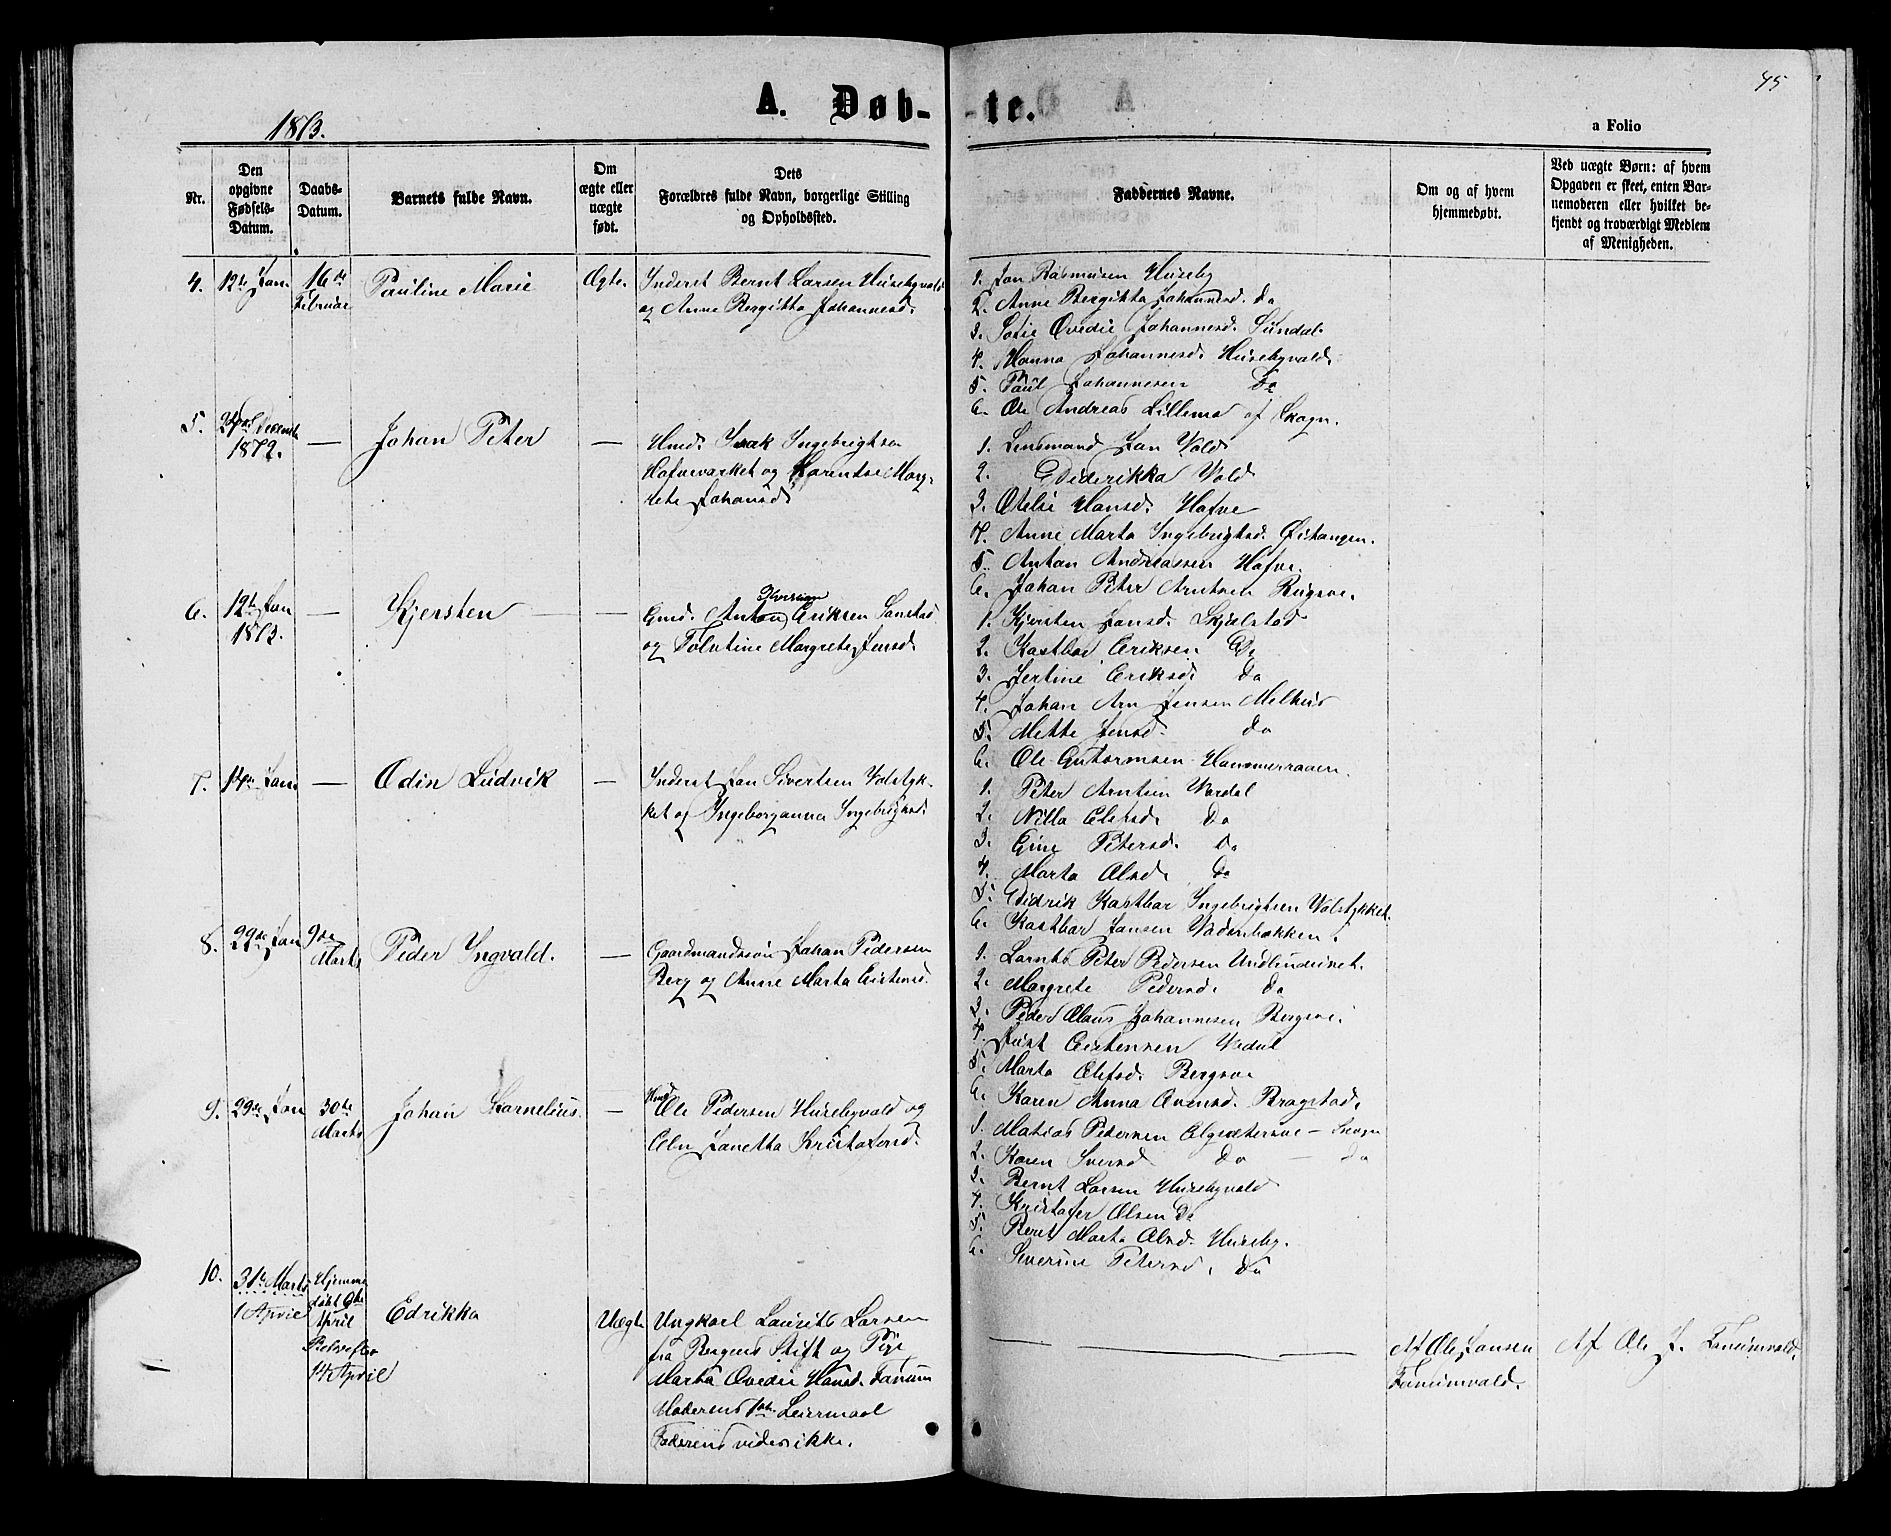 45
A. Døb-te.
1873.
a Folio
Nr.
Den opgivne Fødsels-Datum.
Daabs-Datum.
Barnets fulde Navn.
Om ægte eller uægte født.
Dets Forældres fulde Navn, borgerlige Stilling og Opholdssted.
Faddernes Navne.
Om og af hvem hjemmedøbt.
Ved uægte Børn: af hvem Opgaven er skeet, enten Barnemoderen eller hvilket bekjendt og troværdigt Medlem af Menigheden.
4. 12te Jan. 16de Februar Pauline Marie Ægte. Inderst Bernt Larsen Husebyvald
og Anne Bergitta Johannesd.
1. Jan Rasmusen Huseby
2. Anne Bergitta Johannesd. do
3. Sofie Ovedie Johannesd. Sundal
4. Hanna Johannesd. Husebyvald
5. Paul Johannesen do
6. Ole Andreas Lillemo af Skogn.
5. December 1872. — Johan Peter — Hmd. Isak Ingebrigtsen
Hofvevarket og Karentse Marg-
rete Johansd
1. Lensmand Jan Vold
2. Diderikka Vold
3. Otelie Hansd. Hofve
4. Anne Marta Ingebrigtsd. Østangen.
5. Antan Andreassen Hofve.
6. Johan Peter Arntsen Rugsve.
6. 12te Jan 1873. — Kjersten — — Gmd. Anton Eriksen
og Margrete Jensd.
1. Kjersten Jansd. Skjelstad
2. Kastbar Eriksen Do
3. Jertine Eriksd. do
4. Johan Arn Jensen Melhus
5. Mette Jensd. do
6. Ole Gutormsen Hammeraaen.
7. Jan. — Odin Ludvik — Inderst Jan Sivertsen Volstyk-
ket og Ingeborganna Ingebrigtsd.
1. Peter Arntsen Vordal
2. Nilla Olefsd. do
3. Gine Petersd. do
4. Marta Olsd. do
5. Didrik Kastbar Ingebrigtsen Volstykket.
6. Kastbar Jansen
8. 22de Jan 9de Marts Peder Ingvald. — Gaardmandssøn Johan Pedersen
Berg og Anne Marta Eistensd.
1. Lornts Peter Pedersen
2. Margrete Pedersd. do
3. Peder Olaus Johannesen Bergsve.
4. Just Eistensen
5. Marta Olefsd. Bergsve
6. Karen Anna Ovensd. Bragstad.
9. 29de Jan 30te Marts Johan Kornelius. — Hmd Ole Pedersen Husebyvald og
Elen Janetta Kristofersd.
1. Matias Petersen Elgsætersve — Skogn
2. Karen Iversd do — do
3. Bernt Larsen Husebyvald
4. Kristofer Olsen Do
5. Beret Marta Olsd. Huseby.
6. Severine Petersd. do
10. 31te Marts
1 April
Hjemme
døbt 9de
April
14 April
Edrikka Uægte Ungkarl Laurits Larsen
fra Bergens Stift og Pige
Marta Ovedie Hansd. Fanum
Moderens 1ste Leiermaal
Faderens vides ikke.
Af Ole Jansen
Fanumvald.
Af Ole J. Fanumvald.